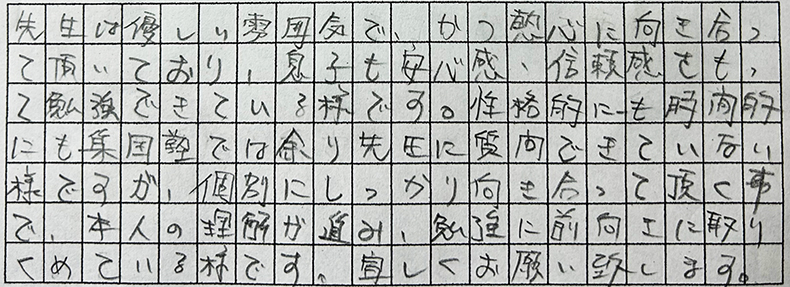 先生は優しい雰囲気で、かつ熱心に向き合っ
て頂いており、息子も安心感、信頼感をもっ
て勉強できている様です。性格的にも時間的
にも集団塾では余り先生に質問できていない
様ですが、個別にしっかり向き合って頂く事
で、本人の理解が進み、勉強に前向きに取り
くめている様です。宜しくお願い致します。